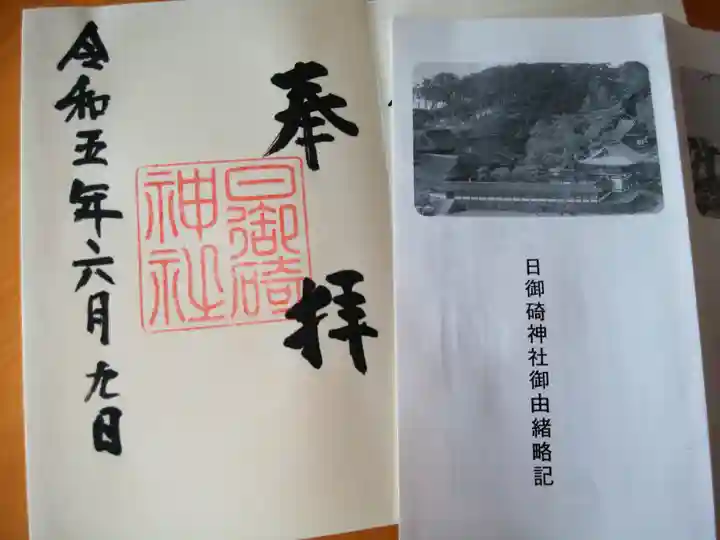 奉拝
日御碕
神社
令和五年六月九日
日御碕神社御由緒略記